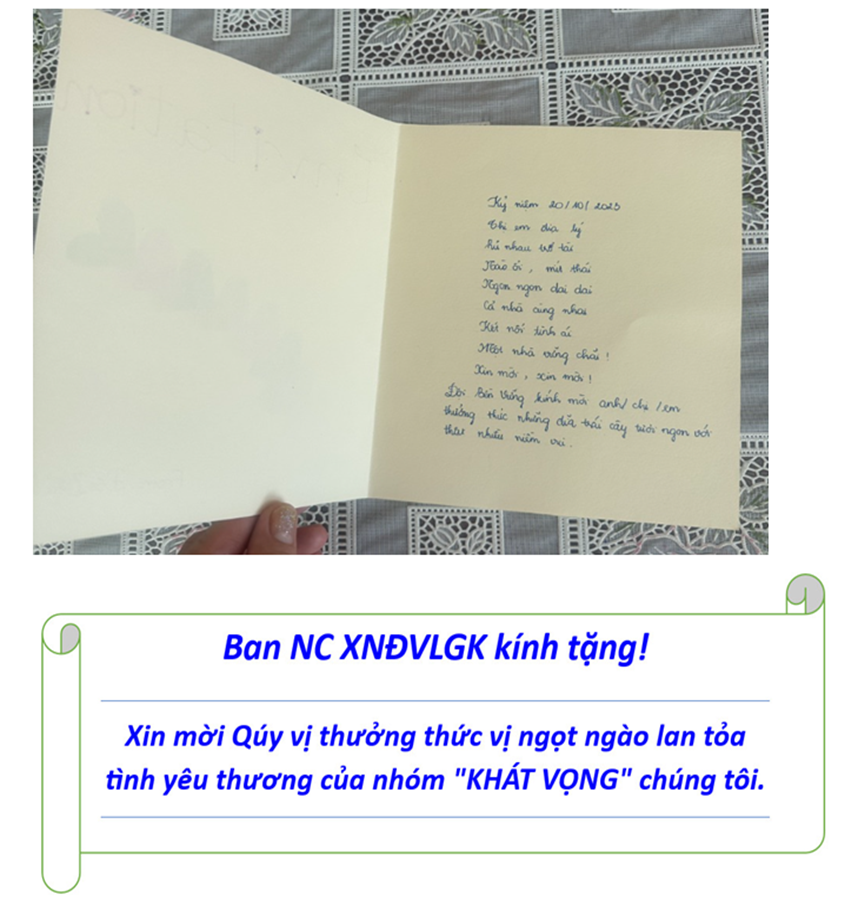 Kỷ niệm 20/10/2023
Chị em địa lý
Rủ nhau trổ tài
Táo ổi, mít thái
Ngon ngon dai dai
Cả nhà cùng nhau
Kết nối tình ái
Một nhà vững chãi!
Xin mời, xin mời!
Đội Bền Vững kính mời anh/chị/em
thưởng thức những dĩa trái cây tươi ngon với
thật nhiều niềm vui.
Ban NC XNĐVLGK kính tặng!
Xin mời Qúy vị thưởng thức vị ngọt ngào lan tỏa
tình yêu thương của nhóm "KHÁT VỌNG" chúng tôi.